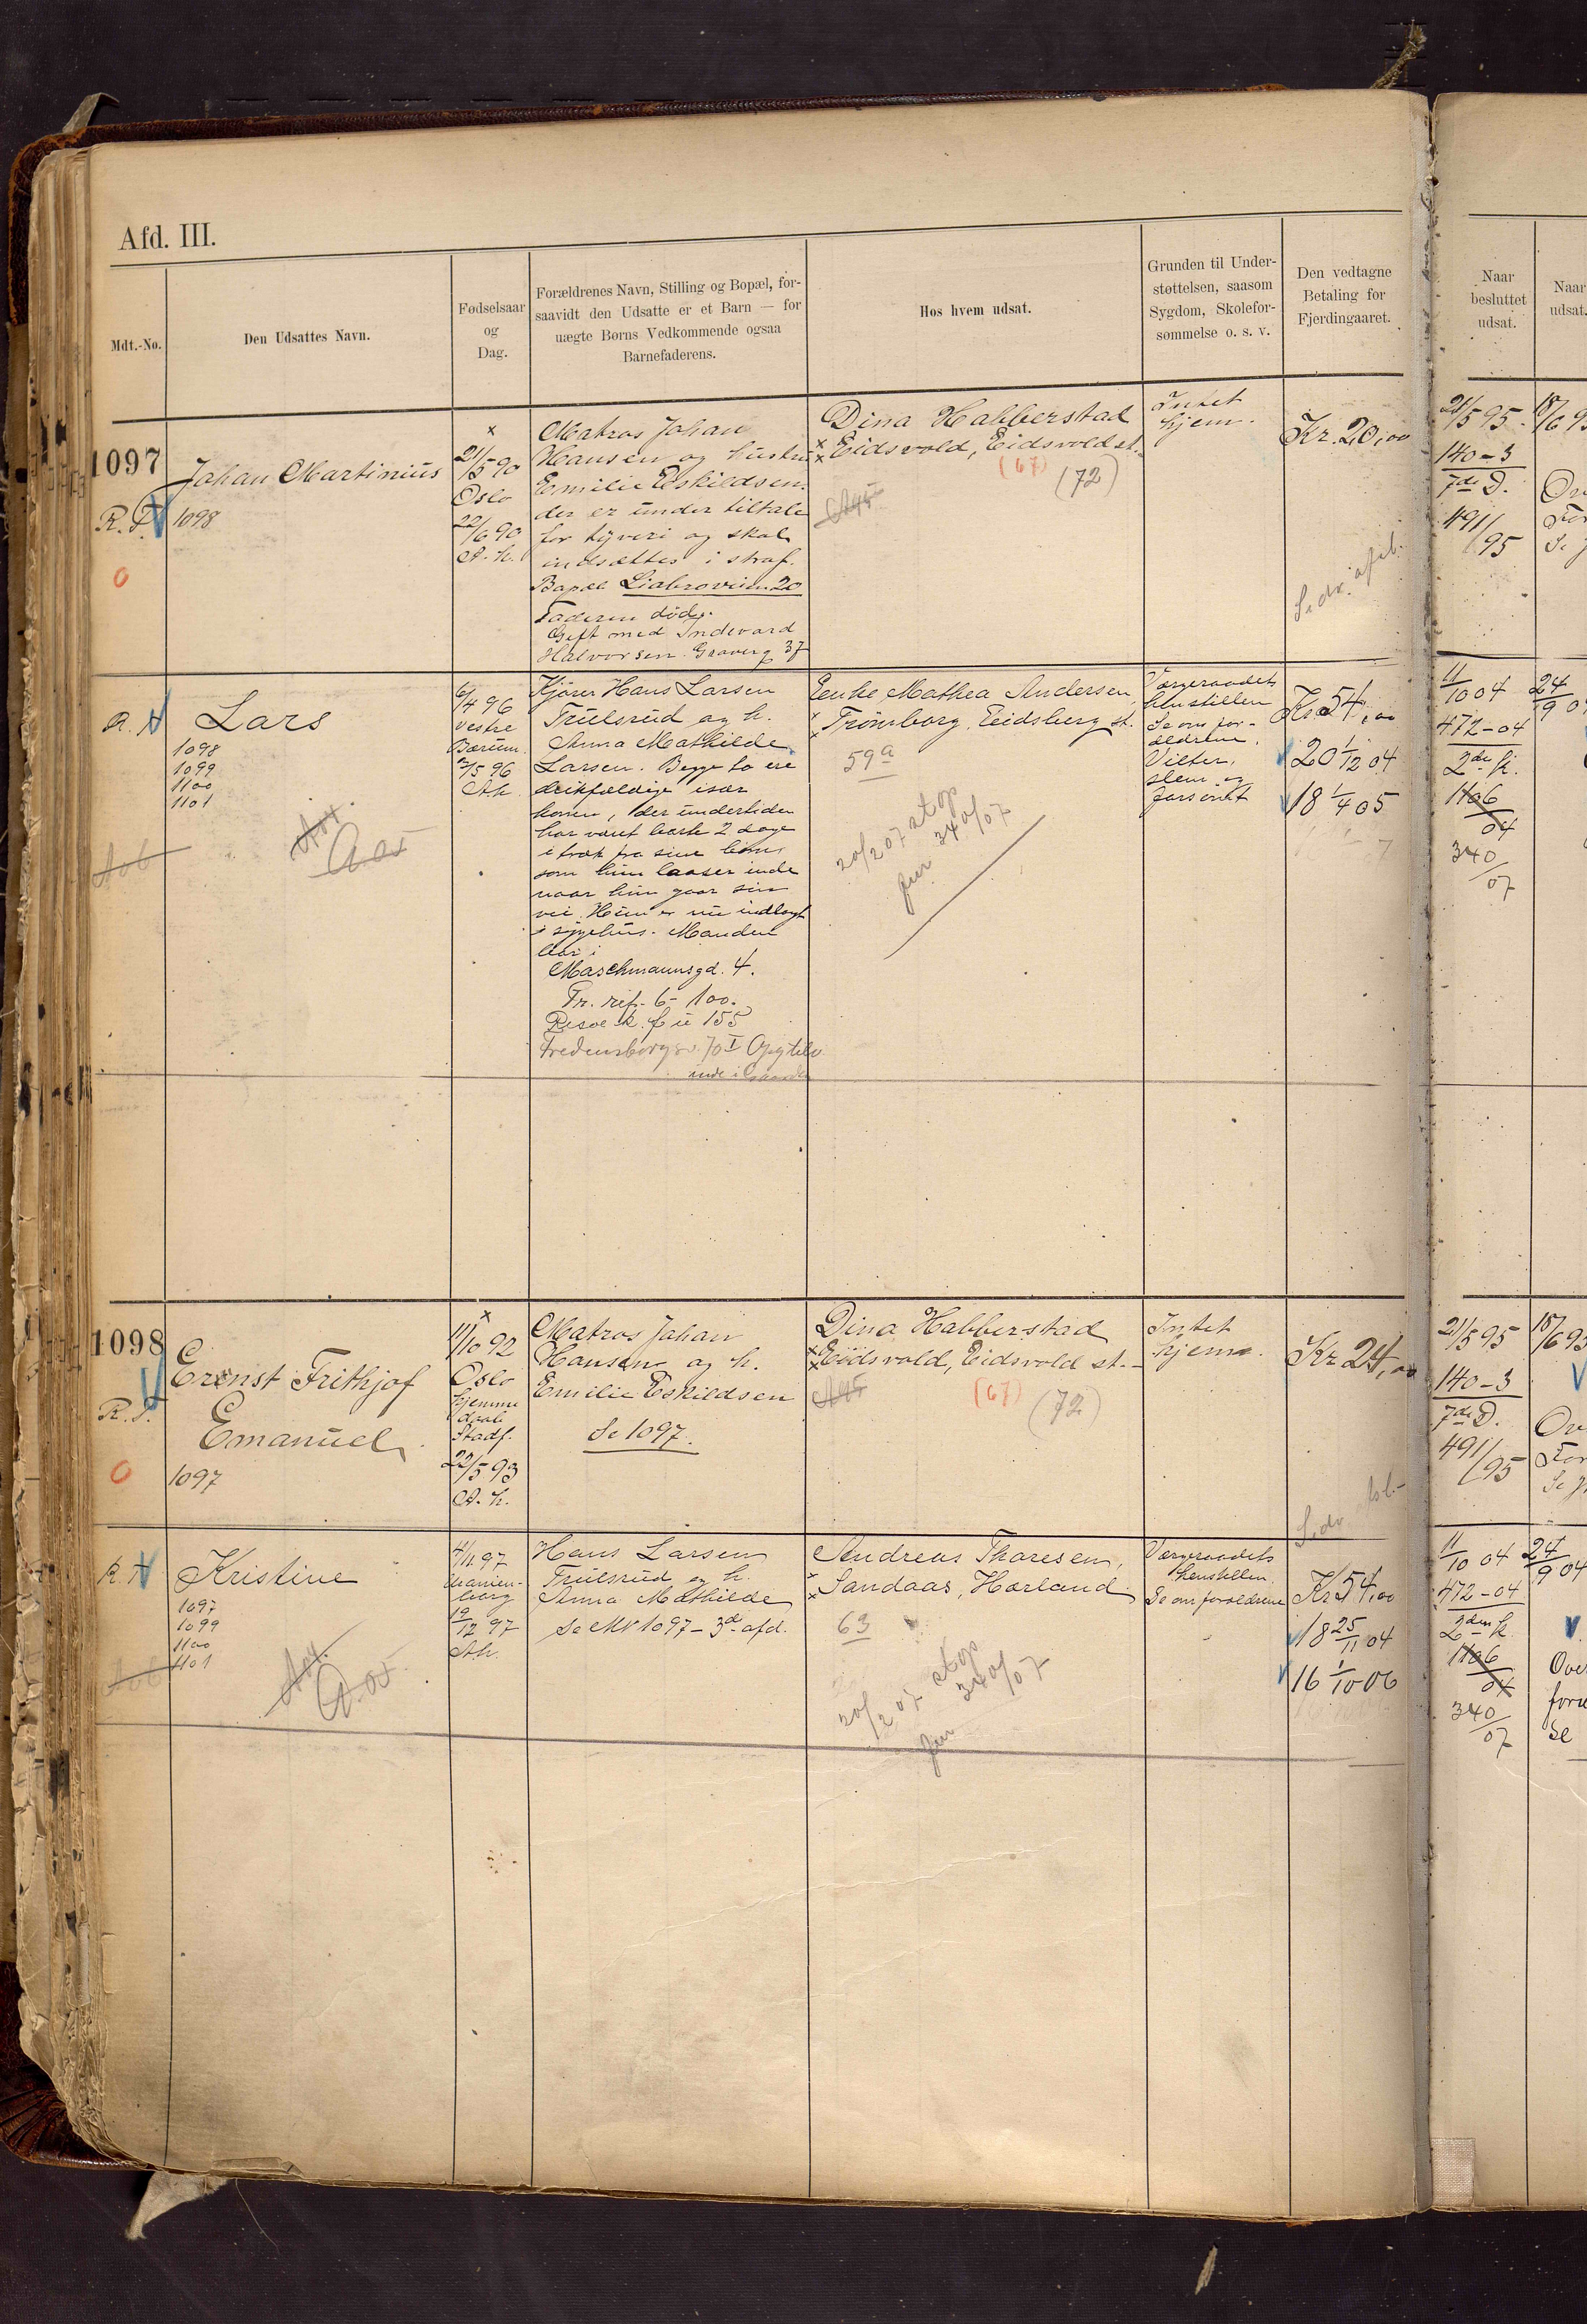 Afd. III.
Mdt.-No.
Den Udsattes Navn.
Fødselsaar
og
Dag.
Forældrenes Navn, Stilling og Bopæl, for-
saavidt den Udsatte er et Barn — for
uægte Børns Vedkommende ogsaa
Barnefaderens.
Hos hvem udsat.
Grunden til Under-
støttelsen, saasom
Sygdom, Skolefor-
sømmelse o. s. v.
Den vedtagne
Betaling for
Fjerdingaaret.
Naar
besluttet
udsat.
Naar
udsat.
1097
R. F.
0
Johan Martinius
1098
×
21/5 90
Oslo
22/6 90
A. k.
Matros Johan
Hansen og hustru
Emilie Eskildsen
der er under tiltale
for tyveri og skal
indsættes i straf.
Bopæl Liabroveien 20
Faderen død.
Gift med Indevard
Halvorsen Graverg 37
Dina Habberstad
×× Eidsvold, Eidsvold st.
(67)
(72)
Intet
hjem.
Kr. 20,00
21/5 95.
140-3
7de D.
491/95
Lars
1098
1099
1100
1101
6/4 96
Vestre
Bærum.
2/5 96
A.k.
Kjører Hans Larsen
Trulsrud og h.
Anna Mathilde
Larsen. Begge to ere
drikfældige især
konen, der undertiden
har været borte 2 dage
i træk fra sine børn,
som hun laaser inde
naar hun gaar sin
vei. Hun er nu indlagt
i sygehus. Manden
bor i
Maschmannsgd. 4.
Fredensborgsv. 70 I Opg tilv.
inde i Gaarden
Enke Mathea Andersen,
×× Trømborg, Eidsberg st.
59a
20/2 07 stop
340/07
Værgeraadets
henstillen
Se om for-
ældrene.
Kr 54,00
20 1/12 04
18 1/4 05
11/10 04
24/9 04
472-04
2de k.
1106/04
340/07
1098
R. F.
0
Ernst Frithjof
Emanuel
1097
×
11/10 92
Oslo
hjemme
daab
Stadf.
22/5 93
A. k.
Matros Johan
Hansen og h.
Emilie Eskildsen
Se 1097.
Dina Habberstad
×× Eidsvold, Eidsvold st.
(67)
(72)
Intet
hjem.
Kr 24,00
21/5 95
140-3
7de D.
491/95
Kristine
1097
1099
1100
1101
4/11 97
12/12 97
A.k.
Hans Larsen
Trulsrud og h.
Anna Mathilde
Se No 1097 - 3de afd.
Andreas Thoresen,
×× Sandaas, Hærland.
63
20/2 07 stop
340/07
Værgeraadets
henstillen.
Se om forældrene
Kr 54,00
18 25/11 04
16 1/10 06
11/10 04
24/9 04
472-04
2den k.
1106/04
340/07